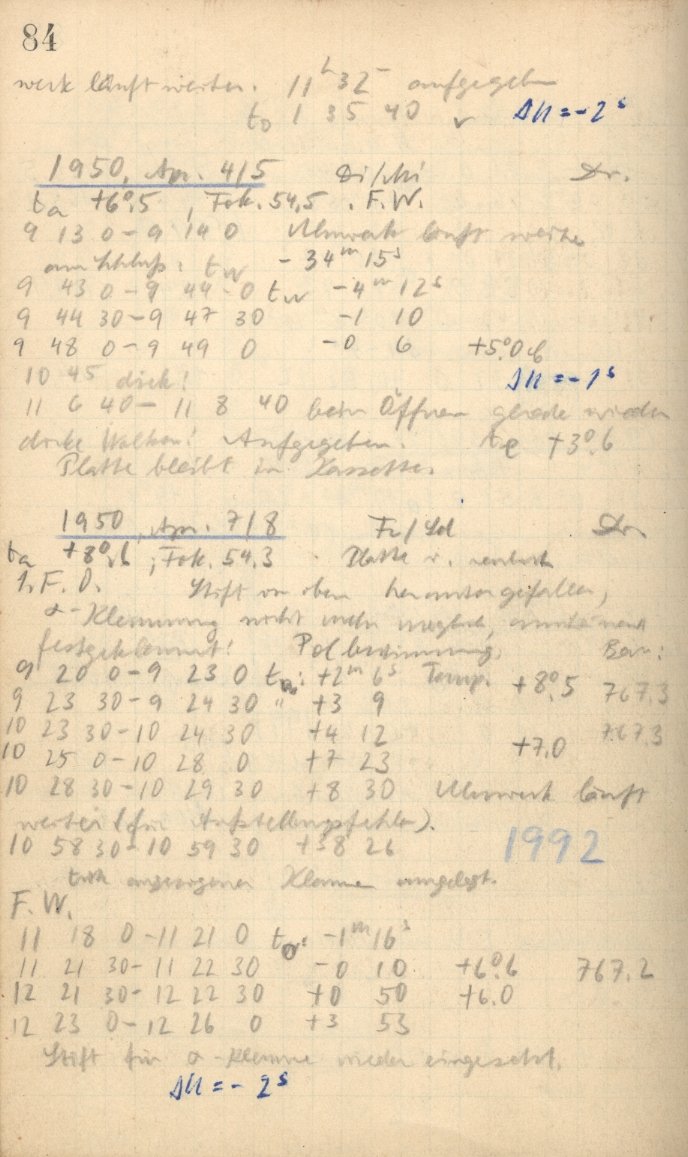 84
werk läuft weiter. 11ʰ 32⁻ aufgegeben
t₀ 1 35 40 v ΔU = -2ˢ
1950, Apr. 4/5 Di/Mi Dr.
ta +6°.5 , Fok. 54,5 . F.W.
9 13 0 - 9 14 0 Uhrwerk läuft weiter
am Schluß: tw - 34ᵐ 15ˢ
9 43 0 - 9 44 0 tw -4ᵐ 12ˢ
9 44 30 - 9 47 30 -1 10
9 48 0 - 9 49 0 -0 6 +5°.06
10 45 dick! ΔU = -1ˢ
11 6 40 - 11 8 40 beim Öffnen gerade wieder
dicke Wolken! Aufgegeben. te +3°.6
Platte bleibt in Kassette.
1950, Apr. 7/8 Fr/ Dr.
ta +8°.6 ; Fok. 54.3 Platte
F. O. Stift von oben herausgefallen,
α-Klemmung nicht mehr möglich,
festgeklemmt! Polbestimmung. Bar:
9 20 0 - 9 23 0 tw: +2ᵐ 6ˢ Temp. +8°.5 767.3
9 23 30 - 9 24 30 " +3 9
10 23 30 - 10 24 30 +4 12 767.3
10 25 0 - 10 28 0 +7 23 +7.0
10 28 30 - 10 29 30 +8 30 Uhrwerk läuft
weiter (für Aufstellungsfehler).
10 58 30 - 10 59 30 +38 26 1992
angezogener Klemme umgelegt.
F. W.
11 18 0 - 11 21 0 t₀: -1ᵐ 16ˢ
11 21 30 - 11 22 30 -0 10 +6°.6 767.2
12 21 30 - 12 22 30 +0 50 +6.0
12 23 0 - 12 26 0 +3 53
Stift für α-Klemme wieder eingesetzt.
ΔU = - 2ˢ